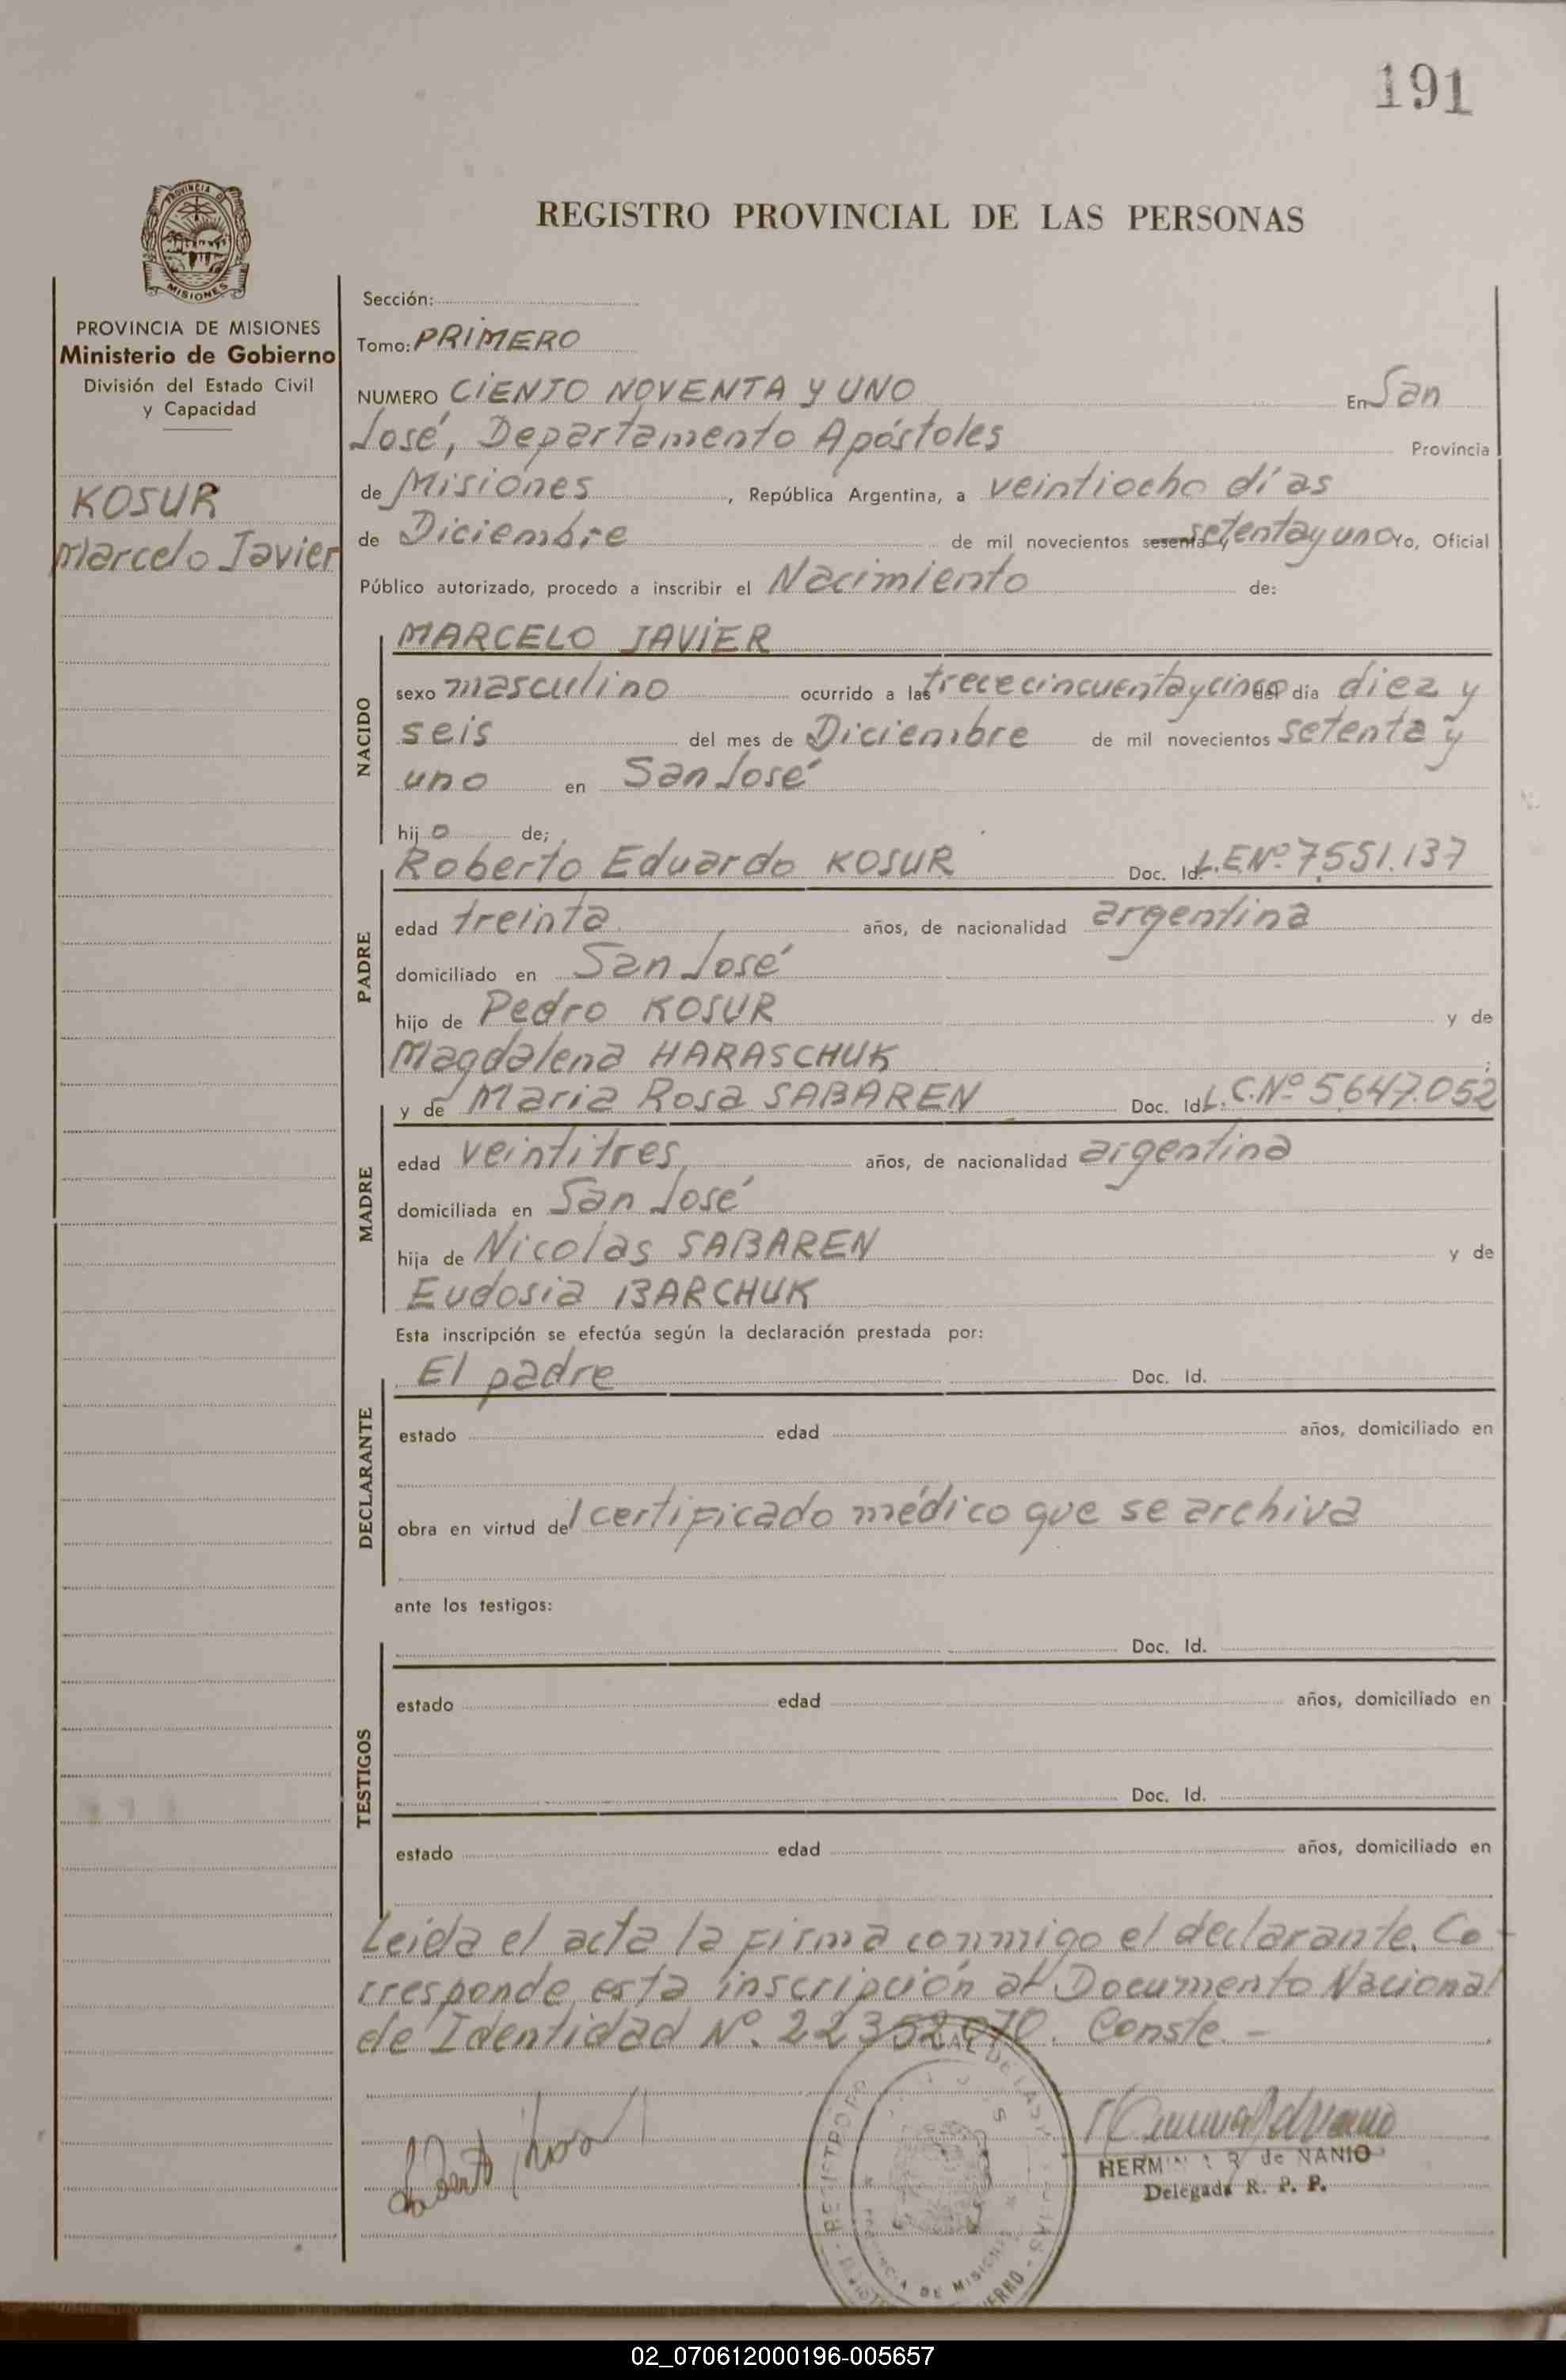 191
REGISTRO PROVINCIAL DE LAS PERSONAS
PROVINCIA
MISIONES
PROVINCIA DE MISIONES
Ministerio de Gobierno
División del Estado Civil
y Capacidad
KOSUR
Marcelo Javier
Sección:
Tomo: PRIMERO
NUMERO CIENTO NOVENTA Y UNO En San
José, Departamento Apóstoles Provincia
de Misiones, República Argentina, a veintiocho días
de Diciembre de mil novecientos sesenta y setenta y uno Yo, Oficial
Público autorizado, procedo a inscribir el Nacimiento de:
NACIDO
MARCELO JAVIER
sexo masculino ocurrido a las trece cincuenta y cinco del día diez y
seis del mes de Diciembre de mil novecientos setenta y
uno en San José
hijo de;
PADRE
Roberto Eduardo KOSUR Doc. Id. L.E Nº 7.551.137
edad treinta años, de nacionalidad argentina
domiciliado en San José
hijo de Pedro KOSUR y de
Magdalena HARASCHUK;
MADRE
y de Maria Rosa SABAREN Doc. Id. L.C. Nº 5.647.052
edad veintitres años, de nacionalidad argentina
domiciliada en San José
hija de Nicolás SABAREN y de
Eudosia BARCHUK
Esta inscripción se efectúa según la declaración prestada por:
DECLARANTE
El padre Doc. Id.
estado edad años, domiciliado en
obra en virtud del certificado médico que se archiva
ante los testigos:
TESTIGOS
Doc. Id.
estado edad años, domiciliado en
Doc. Id.
estado edad años, domiciliado en
Leída el acta la firma conmigo el declarante. Co-
rresponde esta inscripción al Documento Nacional
de Identidad Nº. 22352070. Conste.-
de NANIO
Delegada R. P. P.
02_070612000196-005657